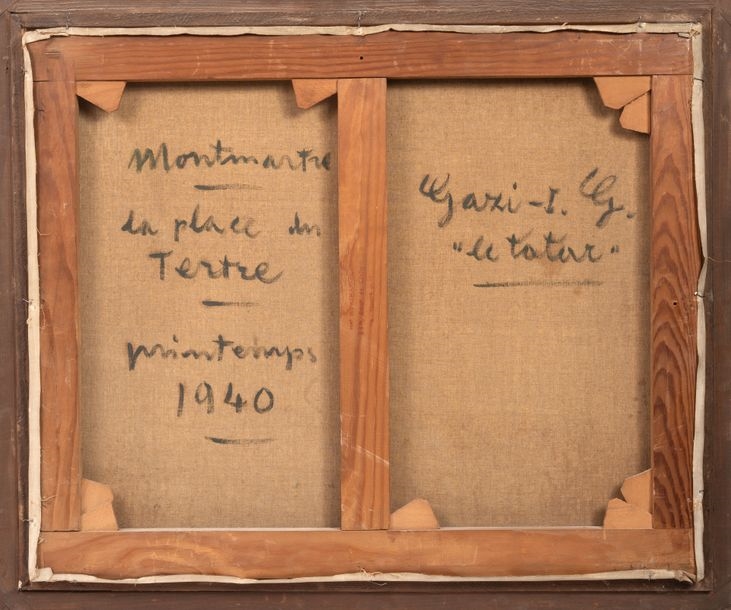 Montmartre
la place du
Tertre
printemps
1940
Gazi-I. G.
"le tatar"